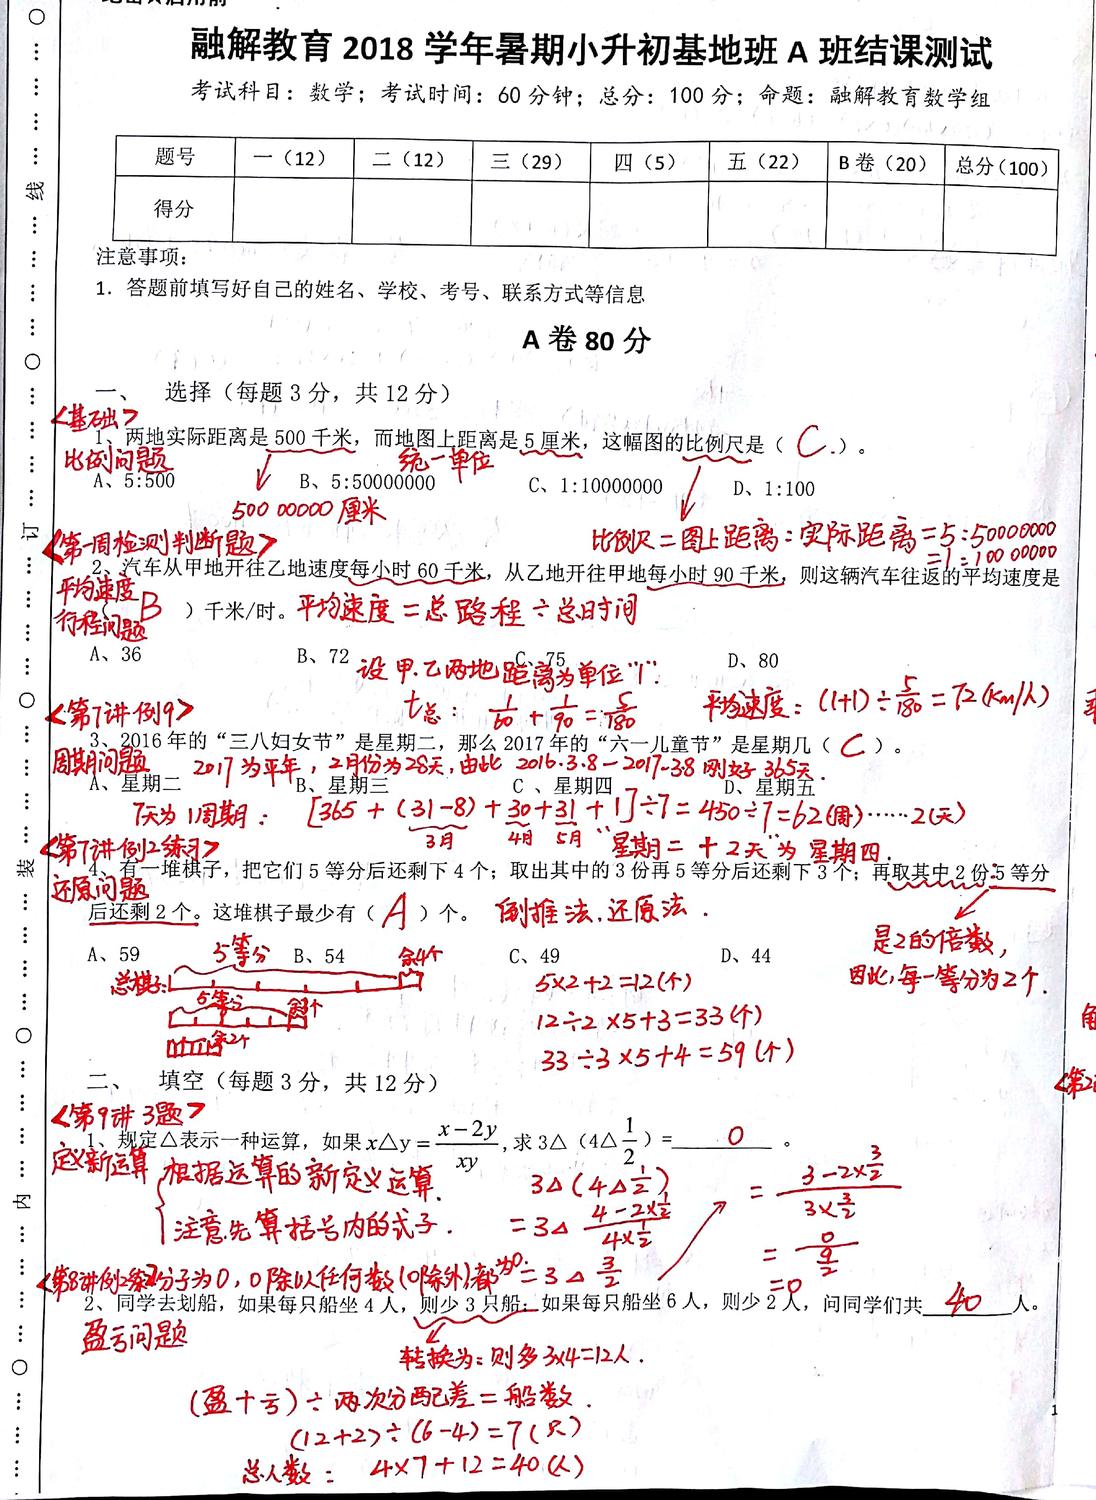 融解教育 2018 学年暑期小升初基地班 A 班结课测试
考试科目：数学；考试时间：60 分钟；总分：100 分；命题：融解教育数学组
题号 一（12） 二（12） 三（29） 四（5） 五（22） B 卷（20） 总分（100）
得分
注意事项：
1．答题前填写好自己的姓名、学校、考号、联系方式等信息
A 卷 80 分
一、 选择（每题 3 分，共 12 分）
<基础>
1、两地实际距离是 500 千米，而地图上距离是 5 厘米，这幅图的比例尺是（ C ）。
比例问题 统一单位
A、5:500 B、5:50000000 C、1:10000000 D、1:100
500 00000 厘米
比例尺＝图上距离：实际距离＝5：50000000
＝1：100 00000
<第一周检测判断题>
2、汽车从甲地开往乙地速度每小时 60 千米，从乙地开往甲地每小时 90 千米，则这辆汽车往返的平均速度是
平均速度
（ B ）千米/时。平均速度＝总路程÷总时间
行程问题
A、36 B、72 C、75 D、80
设甲.乙两地距离为单位“1”.
t总： 1/60 + 1/90 = 5/180 平均速度：(1+1)÷5/180＝72(Km/h)
<第7讲例9>
3、2016 年的“三八妇女节”是星期二，那么 2017 年的“六一儿童节”是星期几（ C ）。
周期问题 2017为平年，2月份为28天，由此 2016.3.8－2017.3.8 刚好 365天.
A、星期二 B、星期三 C 、星期四 D、星期五
7天为1周期： [365 + (31-8) + 30 + 31 + 1]÷7 = 450÷7 = 62(周)……2(天)
3月 4月 5月 “星期二 + 2天”为 星期四.
<第7讲例2练习>
4、有一堆棋子，把它们 5 等分后还剩下 4 个；取出其中的 3 份再 5 等分后还剩下 3 个；再取其中 2 份 5 等分
还原问题
后还剩 2 个。这堆棋子最少有（ A ）个。 倒推法.还原法.
是2的倍数，
因此，每一等分为2个.
A、59 B、54 C、49 D、44
5等分 余4个
总棋子：
5等分 余3个
余2个
5×2+2=12(个)
12÷2×5+3=33(个)
33÷3×5+4=59(个)
二、 填空（每题 3 分，共 12 分）
<第9讲 3题>
1、规定△表示一种运算，如果 x△y = (x−2y)/(xy)，求 3△（4△1/2）= 0 。
定义新运算
根据运算的新定义运算.
注意先算括号内的式子.
3△(4△1/2)
= 3△ (4-2×1/2)/(4×1/2)
= 3 △ 3/2
= (3-2×3/2)/(3×3/2)
= 0/(9/2)
=0
分子为0，0除以任何数(0除外)都为0.
<第8讲例2练习
2、同学去划船，如果每只船坐 4 人，则少 3 只船；如果每只船坐 6 人，则少 2 人，问同学们共 40 人。
盈亏问题
转换为：则多3×4=12人.
(盈+亏)÷两次分配差=船数.
(12+2)÷(6-4)=7(只)
总人数： 4×7+12=40(人)
1
线
订
装
内